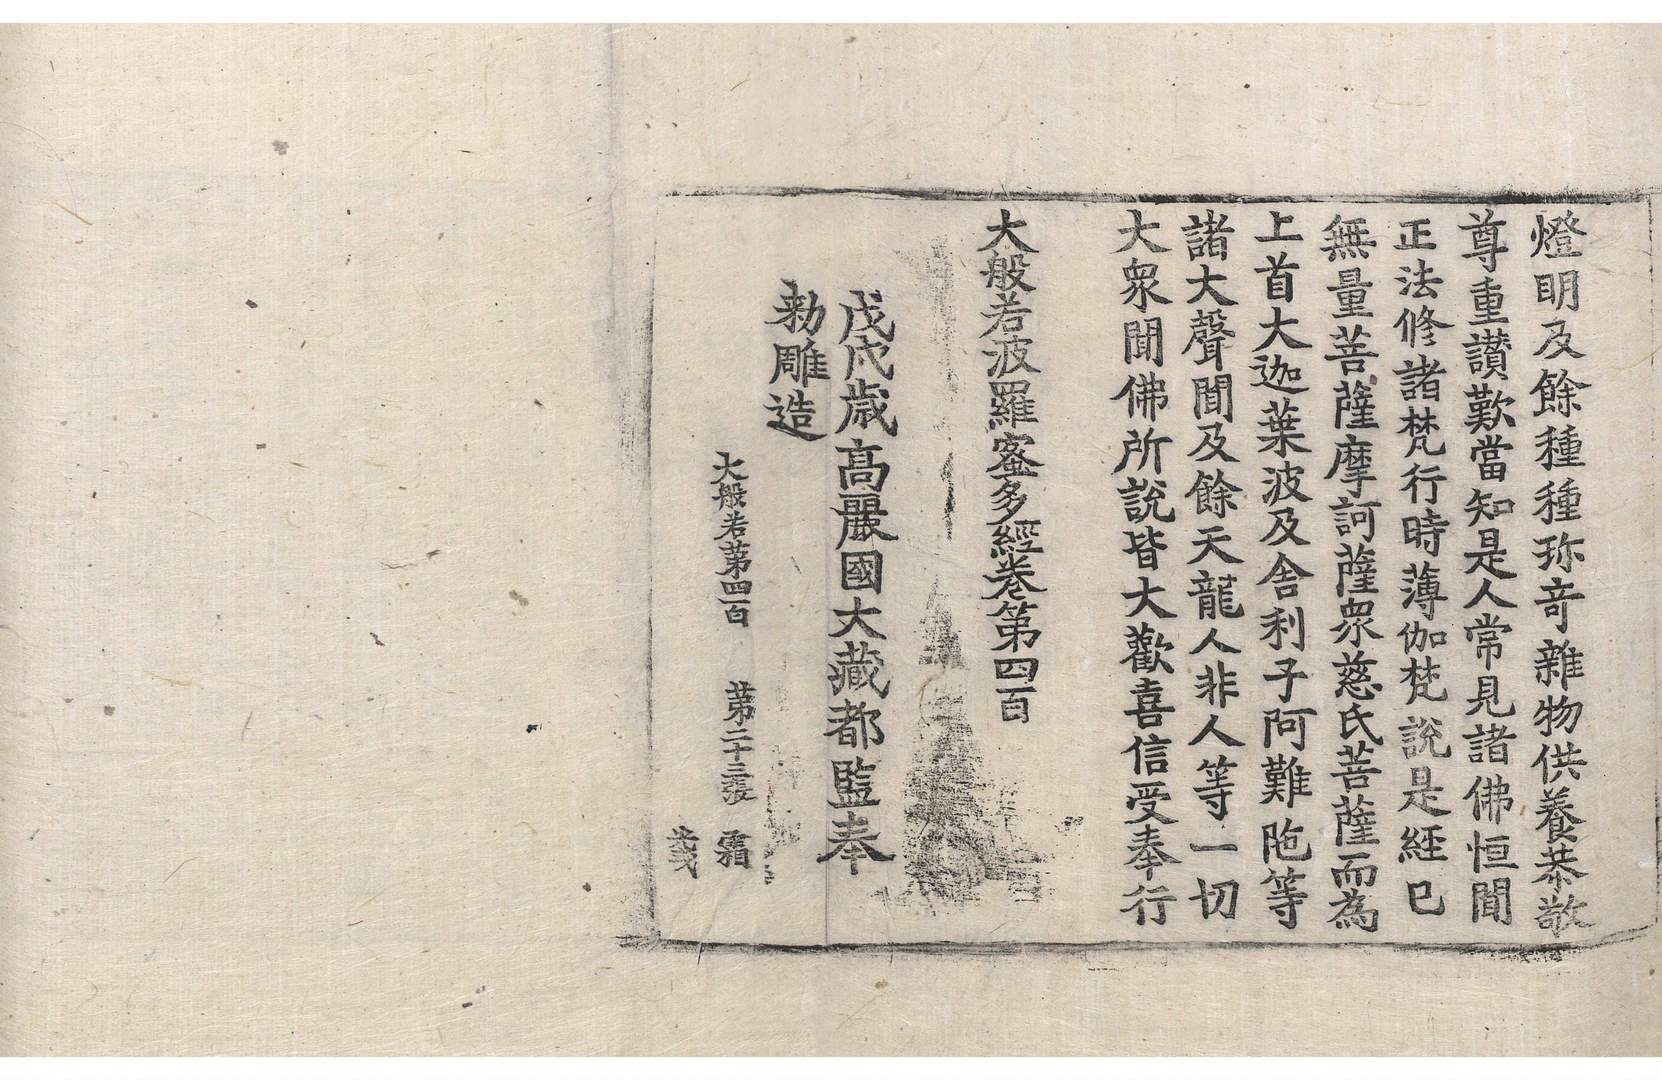 燈明及餘種種珎竒雜物供養恭敬
尊重讃歎當知是人常見諸佛恒聞
正法修諸梵行時薄伽梵說是經已
無量菩薩摩訶薩衆慈氏菩薩而為
上首大迦葉波及舎利子阿難陁等
諸大聲聞及餘天龍人非人等一切
大衆聞佛所說皆大歡喜信受奉行
大般若波羅蜜多經卷第四百
戊戌歲髙麗國大藏都監奉
勑雕造
大般若苐四百 苐二十三張 霜